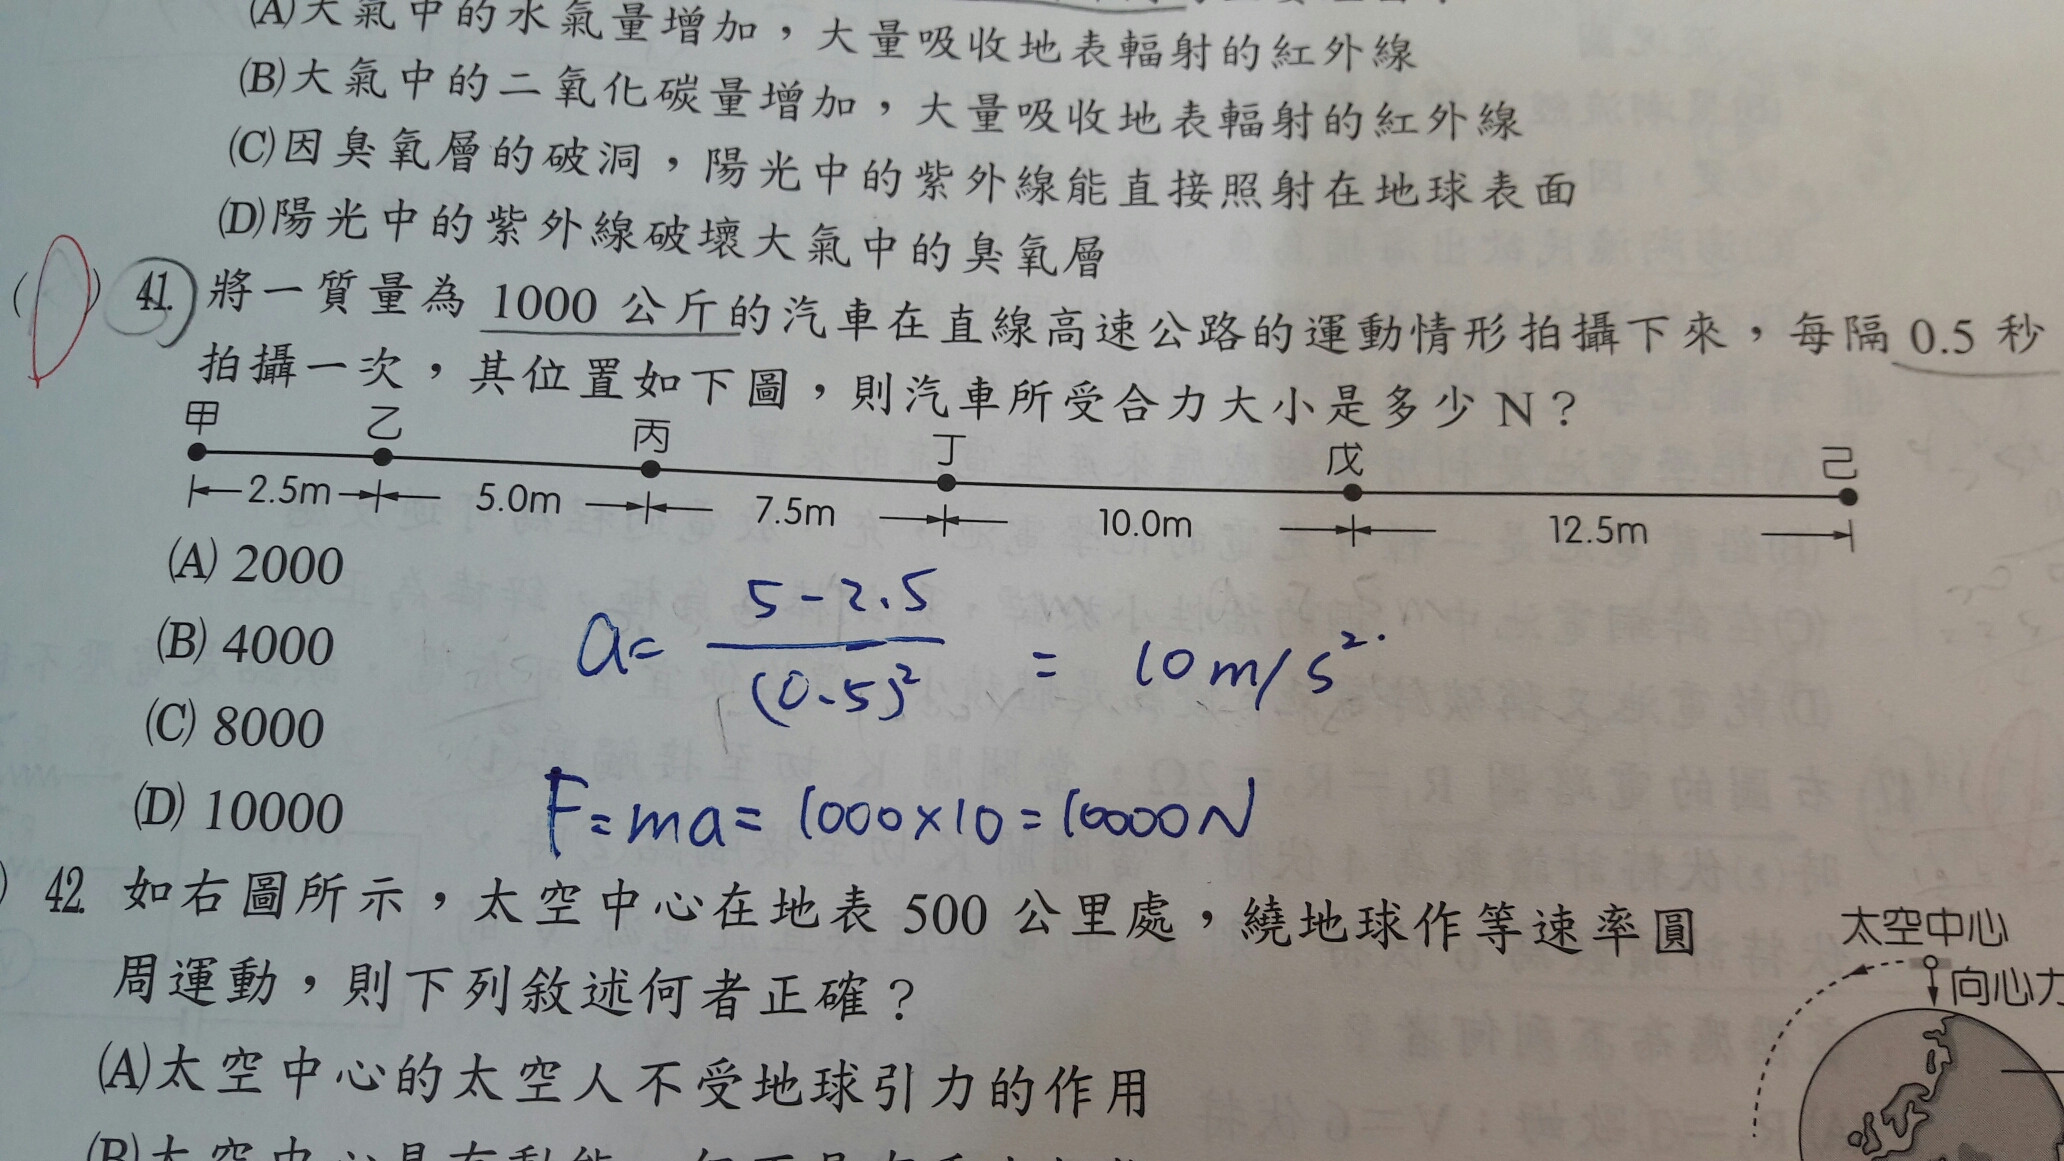 (A)大氣中的水氣量增加，大量吸收地表輻射的紅外線
(B)大氣中的二氧化碳量增加，大量吸收地表輻射的紅外線
(C)因臭氧層的破洞，陽光中的紫外線能直接照射在地球表面
(D)陽光中的紫外線破壞大氣中的臭氧層
( ) 41. 將一質量為 1000 公斤的汽車在直線高速公路的運動情形拍攝下來，每隔 0.5 秒
拍攝一次，其位置如下圖，則汽車所受合力大小是多少 N？
甲 乙 丙 丁 戊 己
2.5m 5.0m 7.5m 10.0m 12.5m
(A) 2000
(B) 4000
(C) 8000
(D) 10000
a= 5-2.5 / (0.5)² = 10 m/s².
F=ma= 1000×10=10000N
) 42. 如右圖所示，太空中心在地表 500 公里處，繞地球作等速率圓
周運動，則下列敘述何者正確？
太空中心
向心力
(A)太空中心的太空人不受地球引力的作用